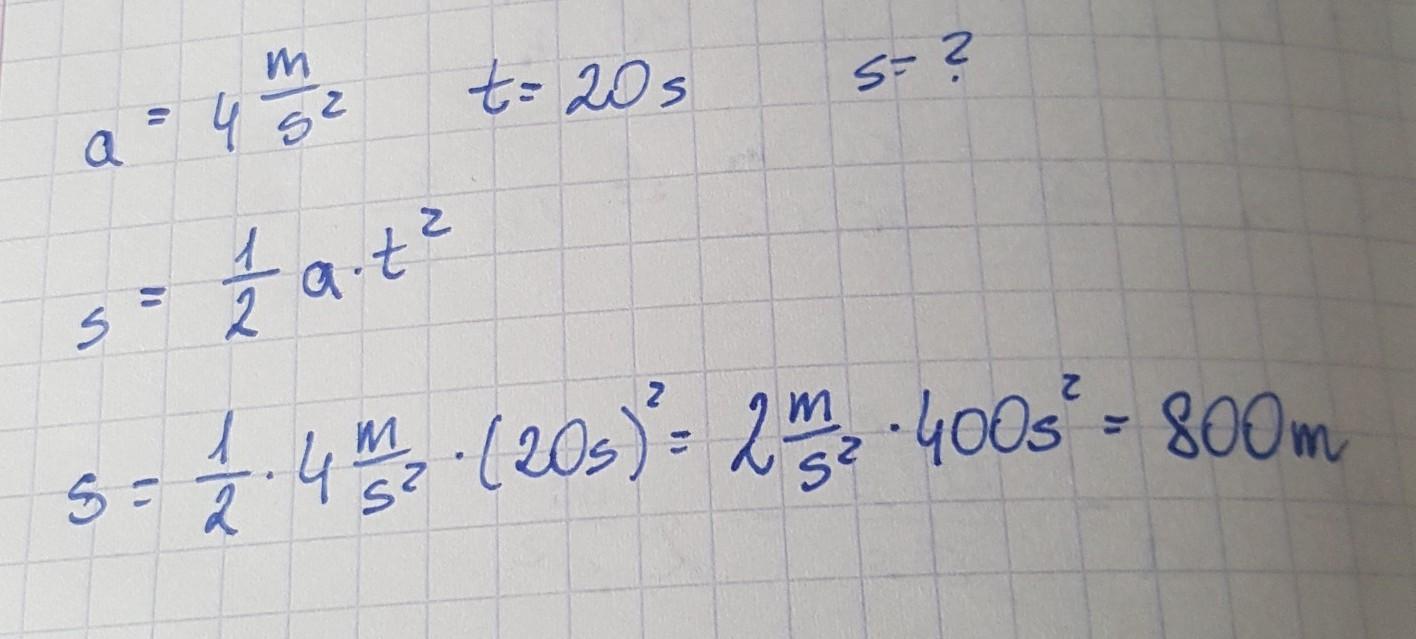 a = 4 m/s² t = 20s s = ?
s = 1/2 a · t²
s = 1/2 · 4 m/s² · (20s)² = 2 m/s² · 400s² = 800m